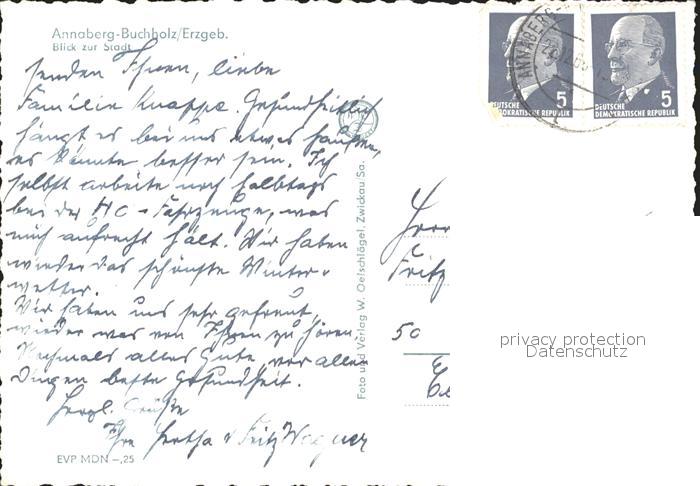 Annaberg-Buchholz/Erzgeb.
Blick zur Stadt
senden Ihnen, liebe
Familie Knappe. Gesundheitlich
hängt es bei uns etwas
es könnte besser sein. Ich
selbst arbeite noch halbtags
bei der HO - Fahrzeuge, was
mich aufrecht hält. Wir haben
wieder das schönste Winter-
wetter.
Wir haben uns sehr gefreut,
wieder was von Ihnen zu hören.
Nochmals alles Gute, vor allen
Dingen beste Gesundheit.
Herzl. Grüße
Ihre Hertha u Fritz Wagner
EVP MDN -,25
Foto und Verlag W. Oelschlägel, Zwickau/Sa.
ANNABERG
DEUTSCHE
DEMOKRATISCHE REPUBLIK
5
DEUTSCHE
DEMOKRATISCHE REPUBLIK
5
Herr
Fritz
50
privacy protection
Datenschutz